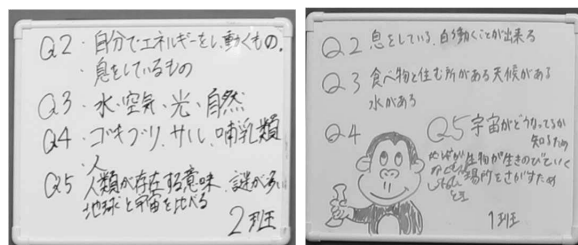 Q2・自分でエネルギーをし、動くもの.
・息をしているもの
Q3・水・空気・光・自然
Q4・ゴキブリ、サル、哺乳類
・人
Q5 人類が存在する意味、謎が多い
地球と宇宙を比べる
2班
Q2 息をしている、自ら動くことが出来る
Q3 食べ物と住む所がある天候がある
水がある
Q4
Q5 宇宙がどうなってるか
知るため
生物が生きのびていく
場所をさがすため
1班